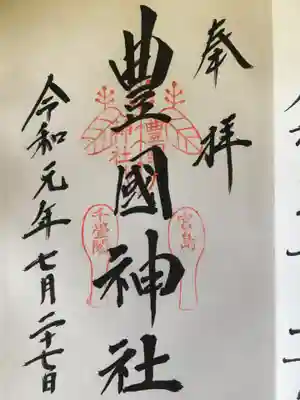 奉拝
豊國神社
豊國神社
宮島
千畳閣
令和元年七月二十七日